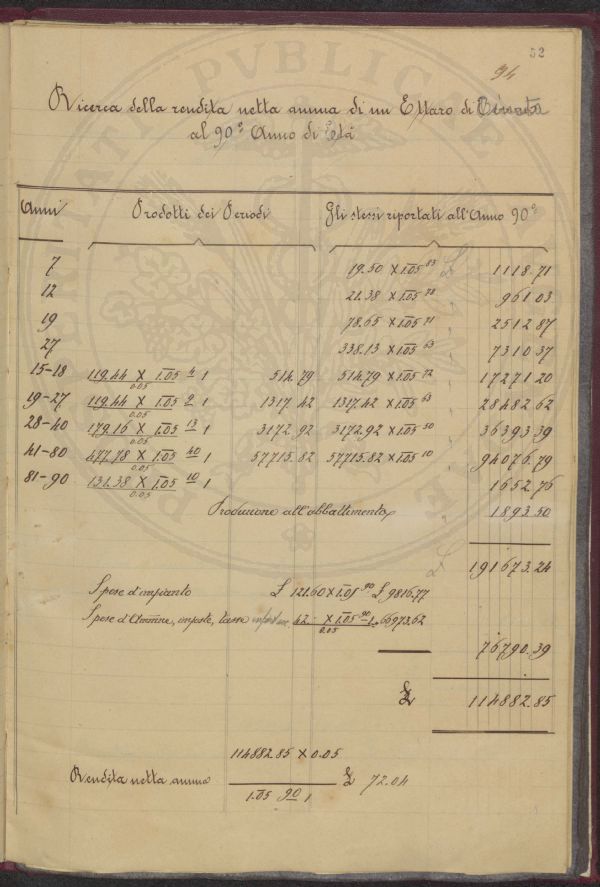 52
94
Ricerca della rendita netta annua di un Ettaro di
al 90° Anno di Età
Anni Prodotti dei Periodi Gli stessi riportati all'Anno 90°
7 19.50 × 1.05 83 £ 1118.71
12 21.38 × 1.05 78 " 961 03
19 78.65 × 1.05 71 " 2512 87
27 338.13 × 1.05 63 " 7310 37
15-18 119.44 × 1.05 4 1 514.79 514.79 × 1.05 72 " 17271 20
0.05
19-27 119.44 × 1.05 9 1 1317.42 1317.42 × 1.05 63 " 28482 62
0.05
28-40 179.16 × 1.05 13 1 3172.92 3172.92 × 1.05 50 " 36393.39
0.05
41-80 477.78 × 1.05 40 1 57715.82 57715.82 × 1.05 10 " 94076.79
0.05
81-90 131.38 × 1.05 10 1 1652.76
0.05
Produzione all'abbattimento " 1893.50
£ 191673.24
Spese d'impianto £ 121.60 × 1.05 90 £ 9816.77
Spese d'Ammne, imposte, tasse 42 × 1.05 90 1 " 66973.62
0.05
76790.39
£ 114882.85
114882.85 × 0.05
Rendita netta annua £ 72.04
1.05 90 1
PVBLICAE